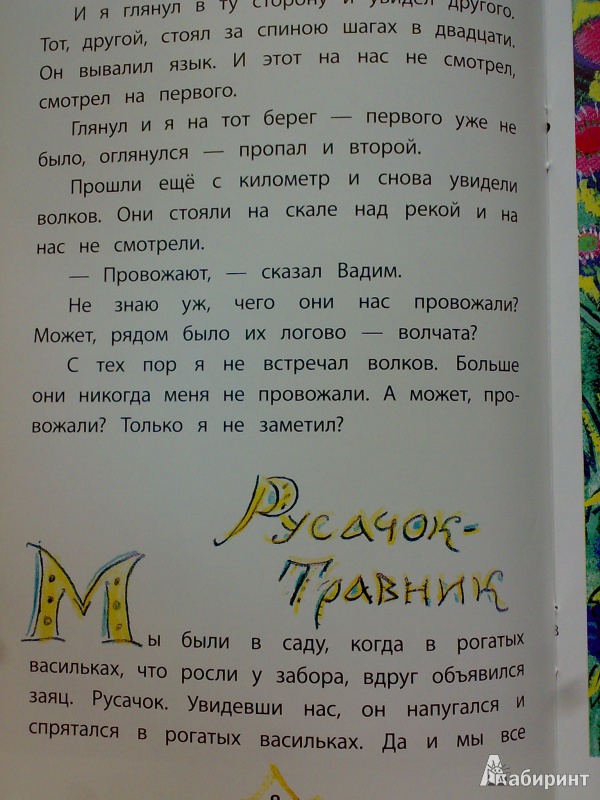 И я глянул в ту сторону и увидел другого.
Тот, другой, стоял за спиною шагах в двадцати.
Он вывалил язык. И этот на нас не смотрел,
смотрел на первого.
Глянул и я на тот берег — первого уже не
было, оглянулся — пропал и второй.
Прошли ещё с километр и снова увидели
волков. Они стояли на скале над рекой и на
нас не смотрели.
— Провожают, — сказал Вадим.
Не знаю уж, чего они нас провожали?
Может, рядом было их логово — волчата?
С тех пор я не встречал волков. Больше
они никогда меня не провожали. А может, про-
вожали? Только я не заметил?
Русачок-
Травник
Мы были в саду, когда в рогатых
васильках, что росли у забора, вдруг объявился
заяц. Русачок. Увидевши нас, он напугался и
спрятался в рогатых васильках. Да и мы все
Лабиринт